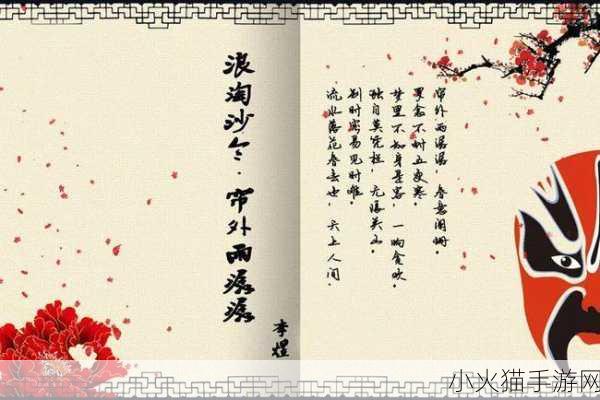 浪淘沙令·帘外雨潺潺
李煜
帘外雨潺潺，春意阑珊。
罗衾不耐五更寒。
梦里不知身是客，一晌贪欢。
独自莫凭栏，无限关山。
别时容易见时难。
流水落花春去也，天上人间。
小火猫手游网